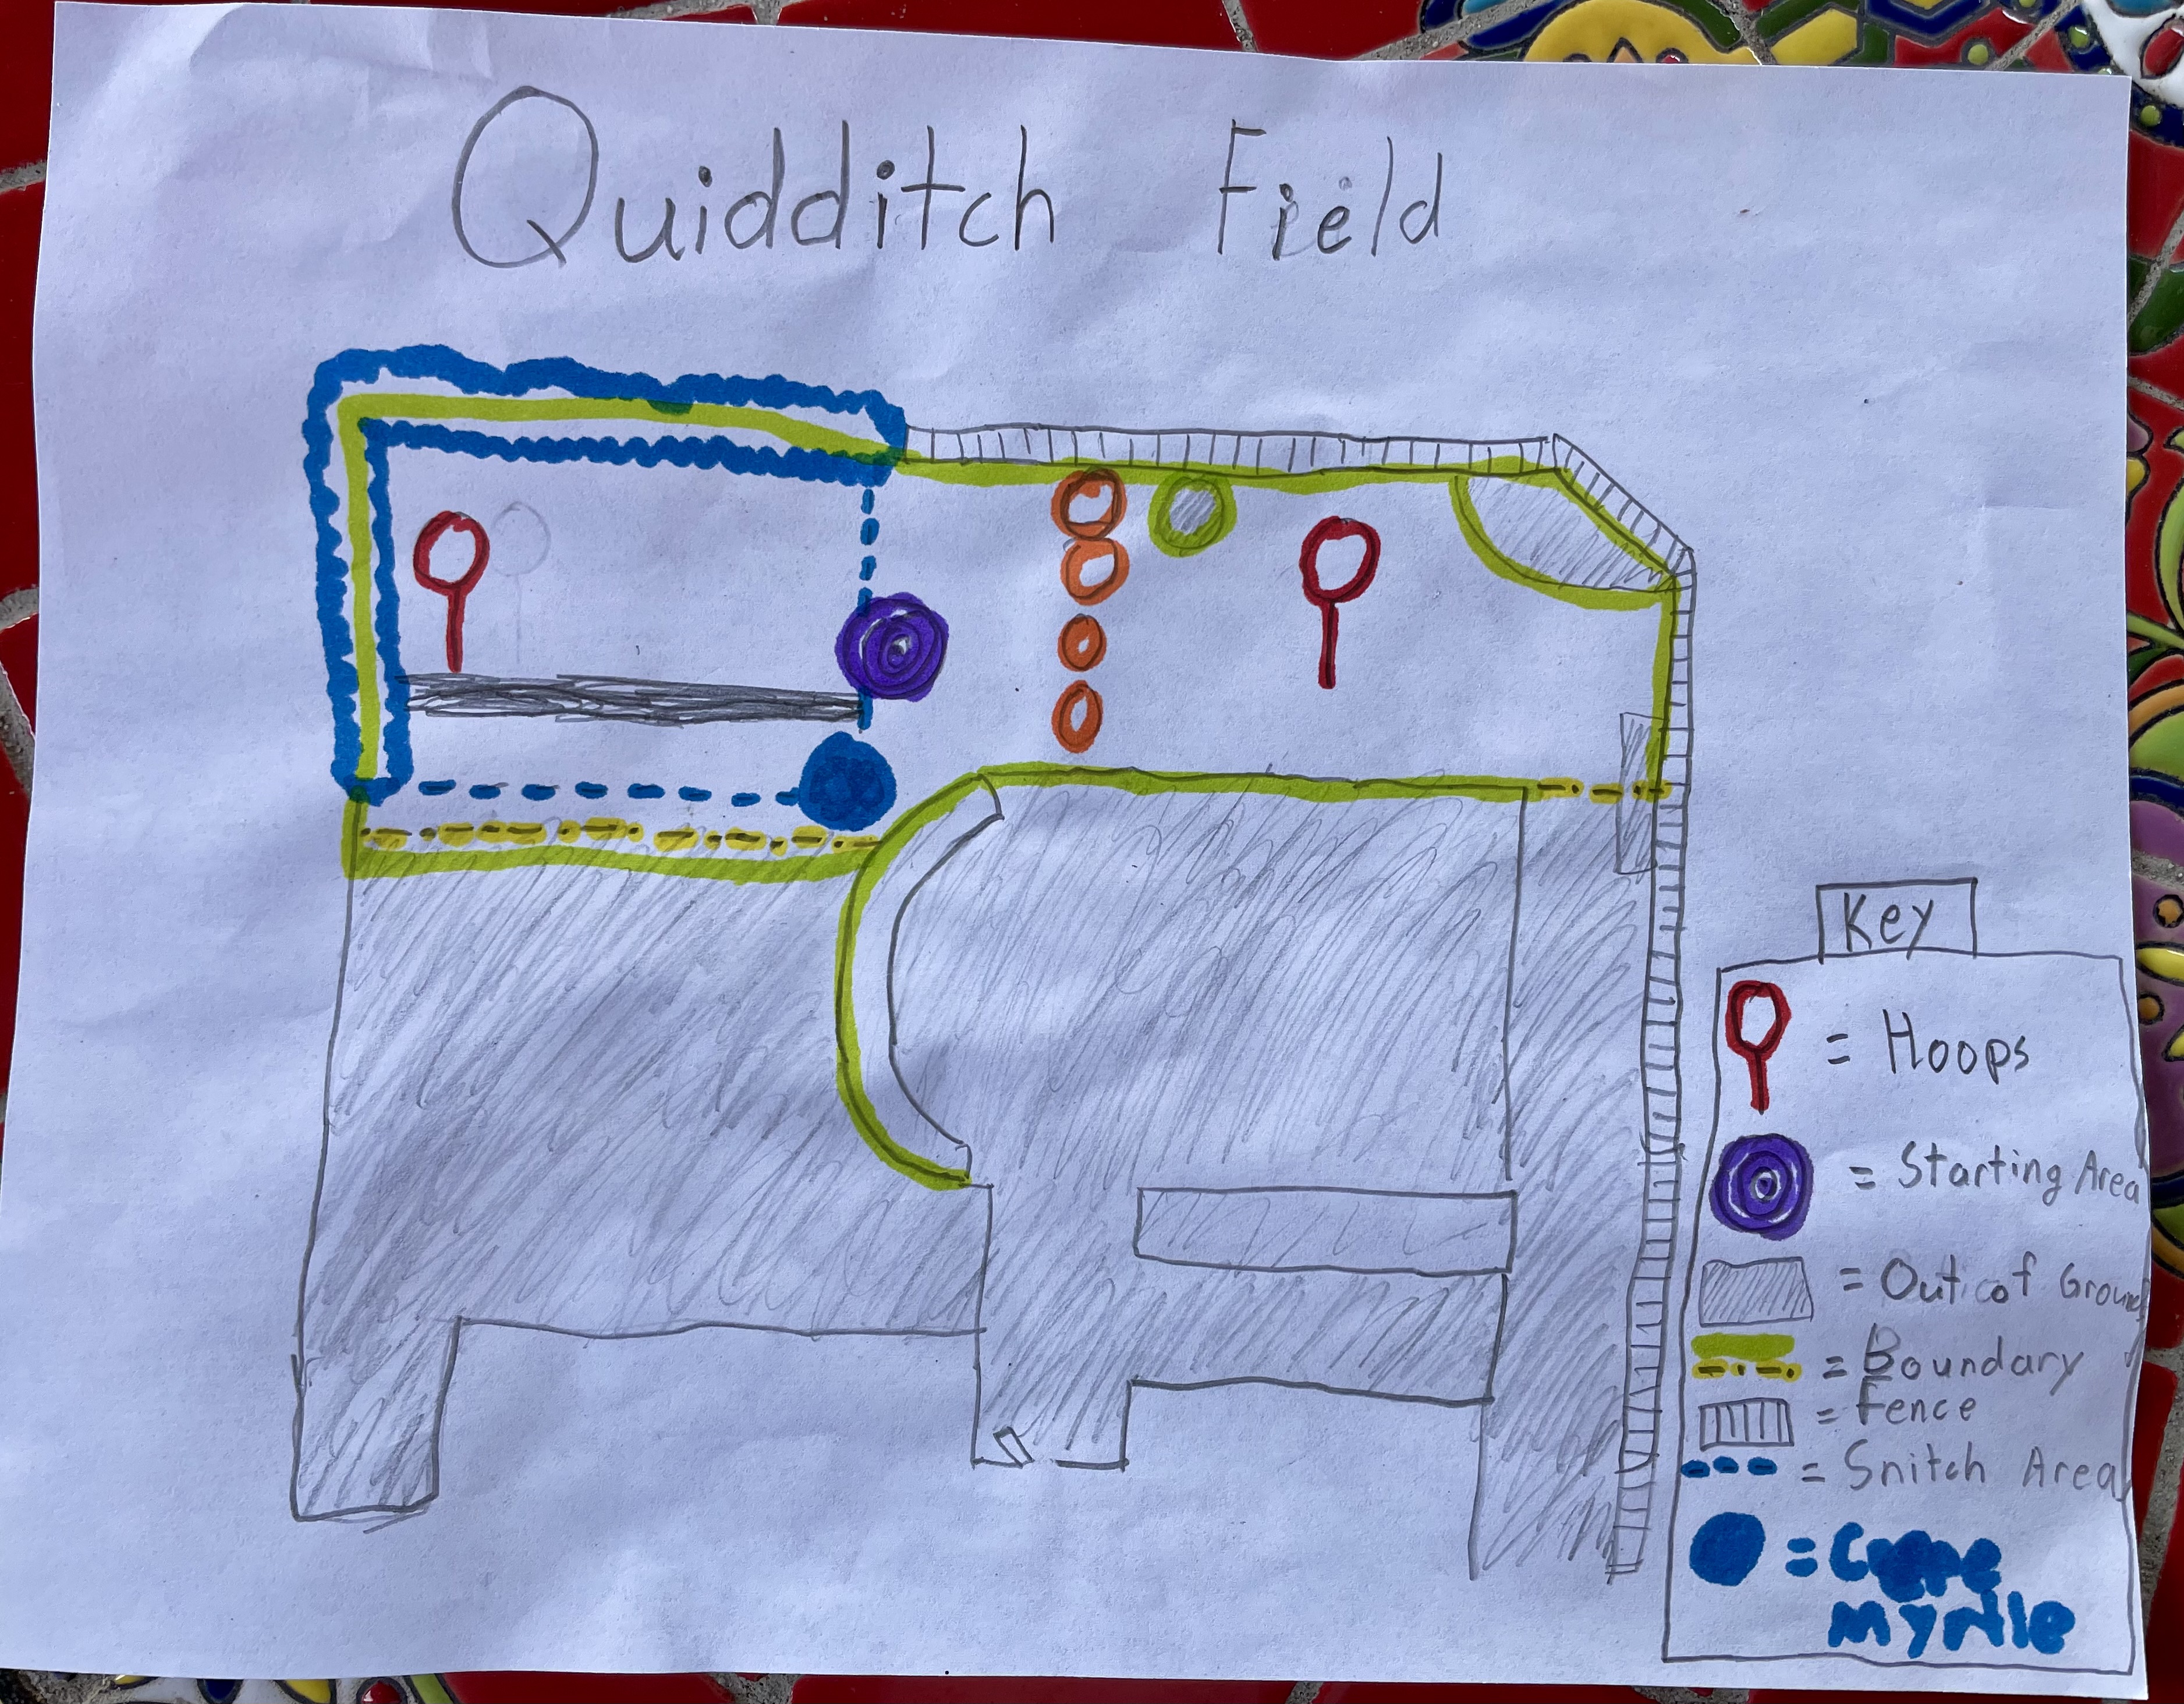 Quidditch Field
Key
= Hoops
= Starting Area
= Out of Ground
= Boundary
= Fence
= Snitch Area
= Crepe
myrtle